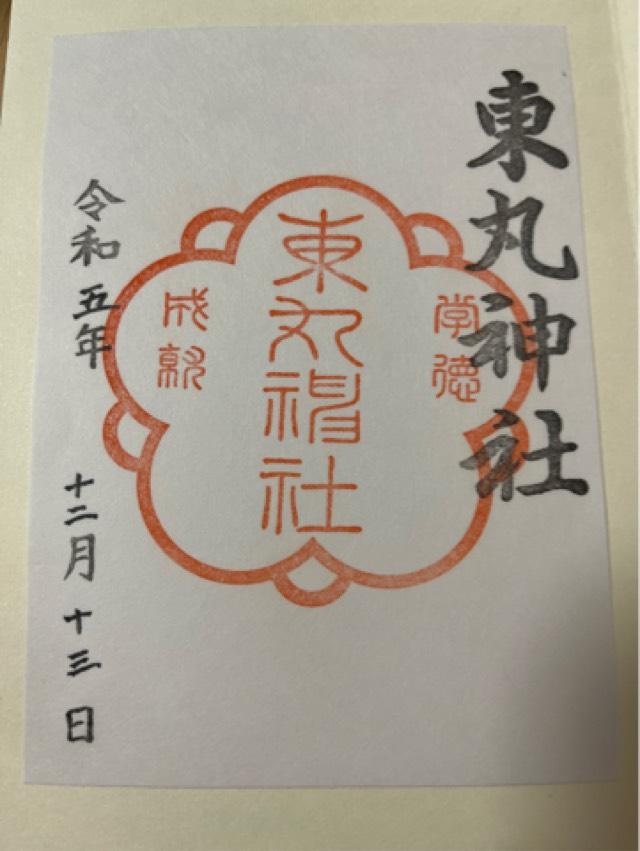 東丸神社
学徳
東丸神社
成就
令和五年
十二月十三日